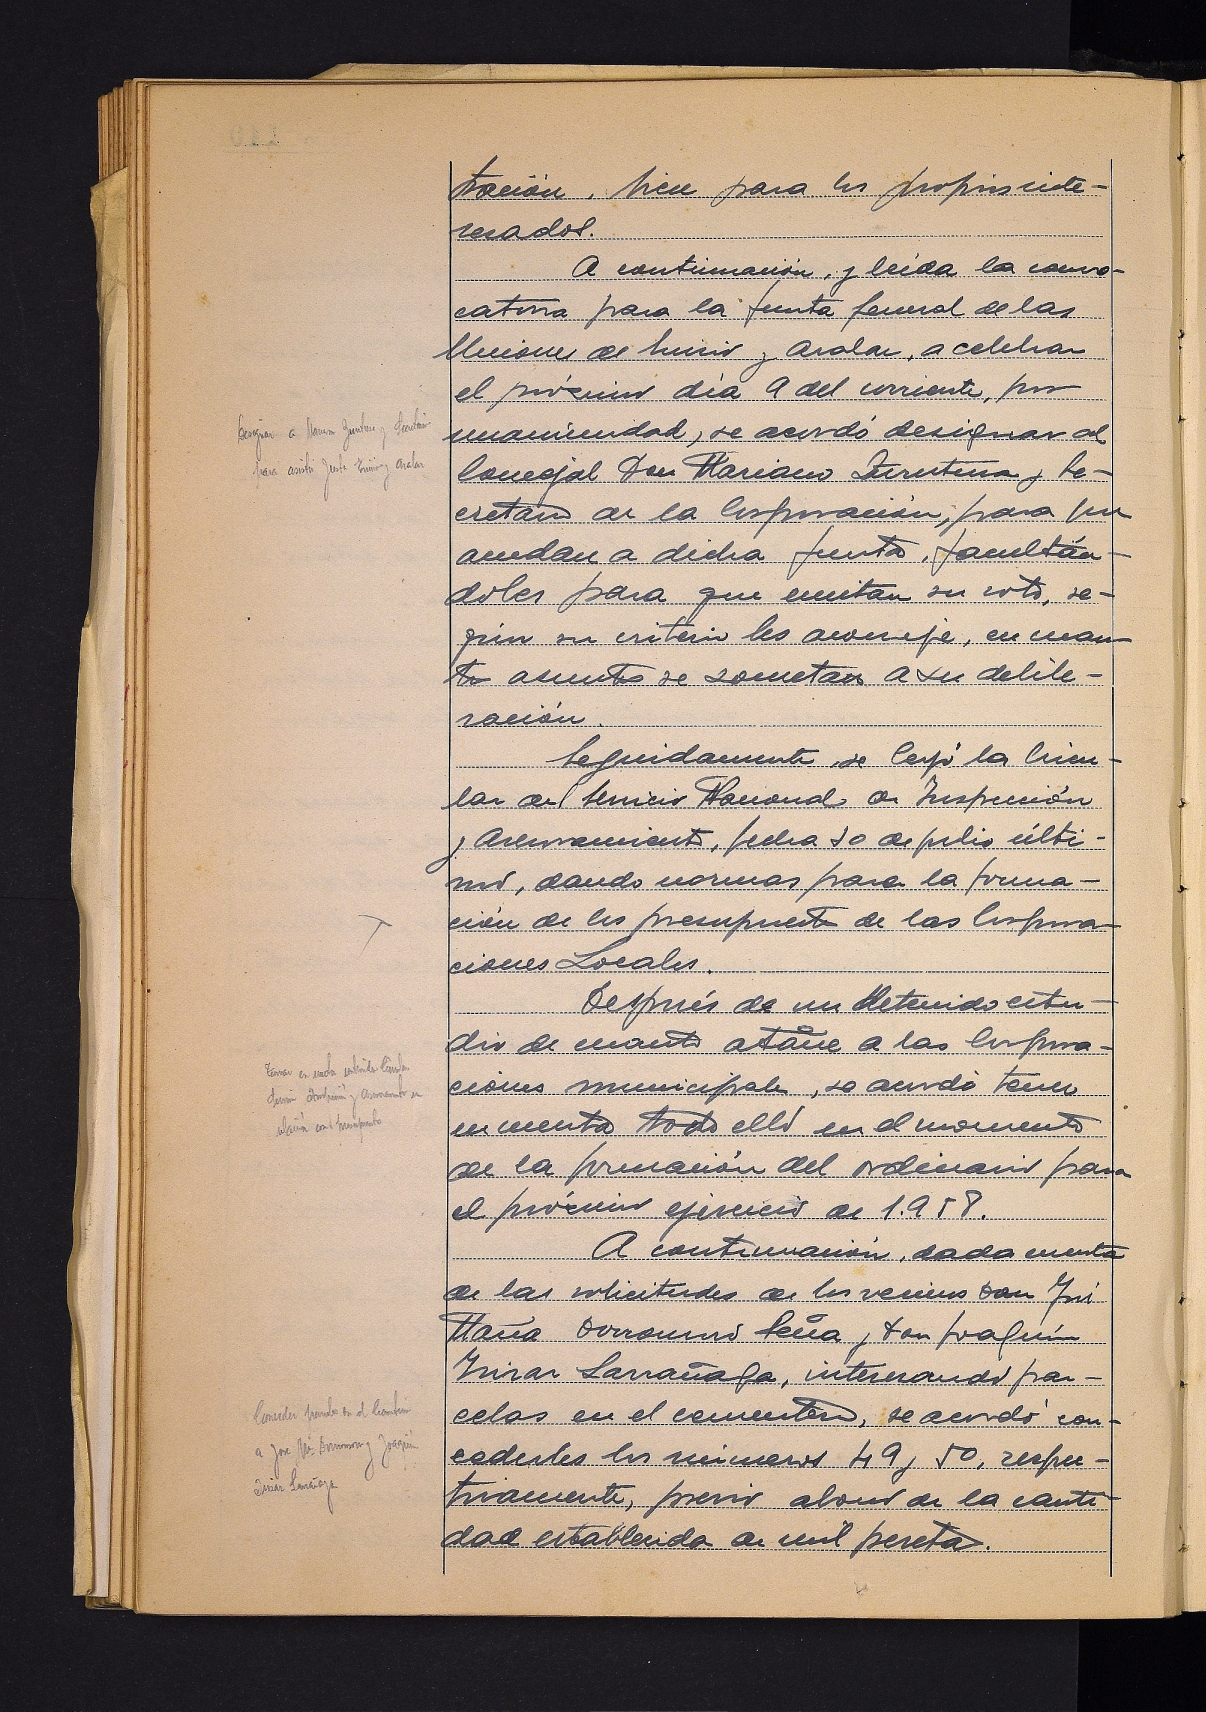 tación, bien para los propios inte-
resados.
A continuación, y leída la convo-
catoria para la Junta General de las
Uniones de Enirio y Aralar, a celebrar
el próximo día 9 del corriente, por
unanimidad, se acordó designar al
Concejal Don Mariano Zurutuza y Se-
cretario de la Corporación, para que
acudan a dicha Junta, facultán-
doles para que emitan su voto, se-
gún su criterio les aconseje, en cuan-
to asuntos se sometan a su delibe-
ración.
Seguidamente, se leyó la Circu-
lar del Servicio Nacional de Inspección
y Asesoramiento, fecha 30 de julio últi-
mo, dando normas para la forma-
ción de los presupuestos de las Corpora-
ciones Locales.
Después de un detenido estu-
dio de cuanto atañe a las Corpora-
ciones municipales, se acordó tener
en cuenta todo ello en el momento
de la formación del ordinario para
el próximo ejercicio de 1.958.
A continuación, dada cuenta
de las solicitudes de los vecinos Don José
María Dorronsoro Ceña y Don Joaquín
Irizar Larrañaga, interesando par-
celas en el cementerio, se acordó con-
cederles los números 49 y 50, respec-
tivamente, previo abono de la canti-
dad establecida de mil pesetas.
Designar a Mariano Zurutuza y Secretario
para asistir Junta Enirio y Aralar
Tomar en cuenta Circular
Servicio Inspección y Asesoramiento en
relación con presupuesto
Conceder parcelas en el Cementerio
a Jose Mª Dorronsoro y Joaquín
Irizar Larrañaga